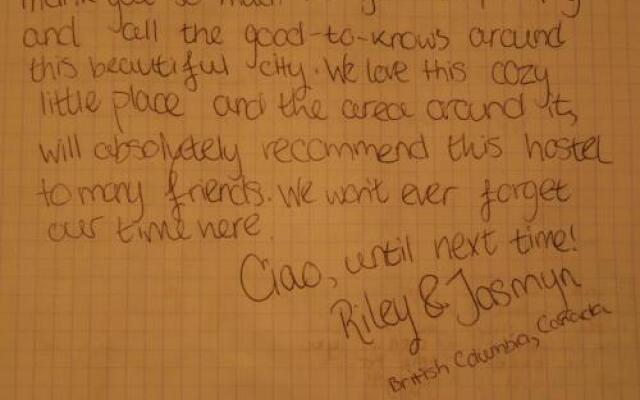 thank you so much
and all the good-to-knows around
this beautiful city. We love this cozy
little place and the area around it,
will absolutely recommend this hostel
to many friends. We won't ever forget
our time here.
Ciao, until next time!
Riley & Jasmyn
British Columbia, Canada